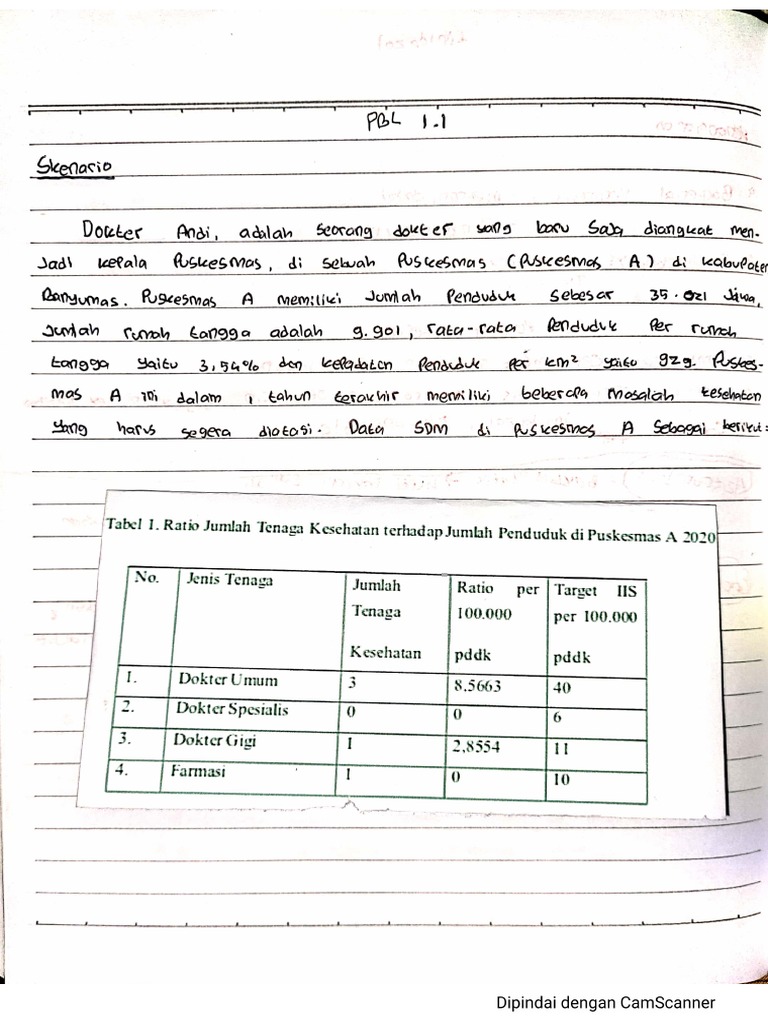 PBL 1.1
Skenario
Dokter Andi, adalah seorang dokter yang baru saja diangkat men-
jadi kepala Puskesmas, di sebuah Puskesmas (Puskesmas A) di kabupaten
Banyumas. Puskesmas A memiliki jumlah Penduduk sebesar 35.021 Jiwa,
jumlah rumah tangga adalah 9.901, rata-rata Penduduk Per rumah
tangga yaitu 3,54% dan kepadatan Penduduk Per km² yaitu 929. Puskes-
mas A ini dalam 1 tahun terakhir memiliki beberapa masalah kesehatan
yang harus segera diatasi. Data SDM di Puskesmas A sebagai berikut:
Tabel 1. Ratio Jumlah Tenaga Kesehatan terhadap Jumlah Penduduk di Puskesmas A 2020
No. Jenis Tenaga Jumlah Tenaga Kesehatan Ratio per 100.000 pddk Target IIS per 100.000 pddk
1. Dokter Umum 3 8.5663 40
2. Dokter Spesialis 0 0 6
3. Dokter Gigi 1 2,8554 11
4. Farmasi 1 0 10
Dipindai dengan CamScanner